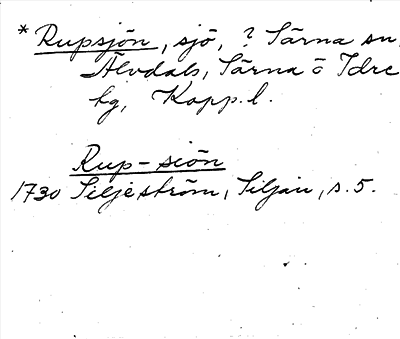 * Rupsjön, sjö, ? Särna sn,
Älvdals, Särna o Idre
hg, Kopp. l.
Rup-siön
1730 Siljeström, Siljan, s. 5.